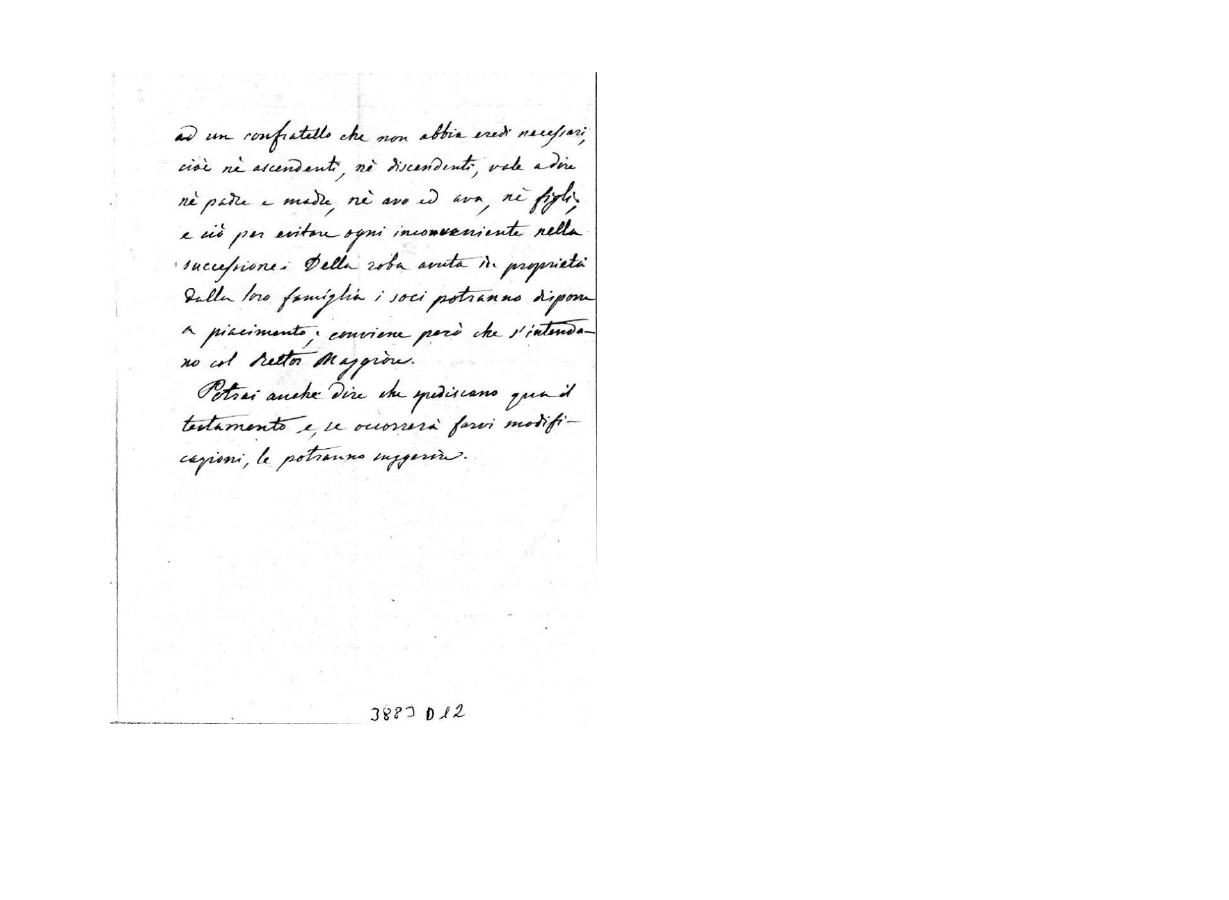 ad un confratello che non abbia eredi necessari,
cioè nè ascendenti, nè discendenti, vale a dire
nè padre e madre, nè avo ed ava, nè figli;
e ciò per evitare ogni inconveniente nella
successione. Della roba avuta in proprietà
dalla loro famiglia i soci potranno disporre
a piacimento; conviene però che s'intenda-
no col Rettor Maggiore.
Potrai anche dire che spediscano qua il
testamento e, se occorrerà farvi modifi-
cazioni, le potranno suggerire.
3883 D 12